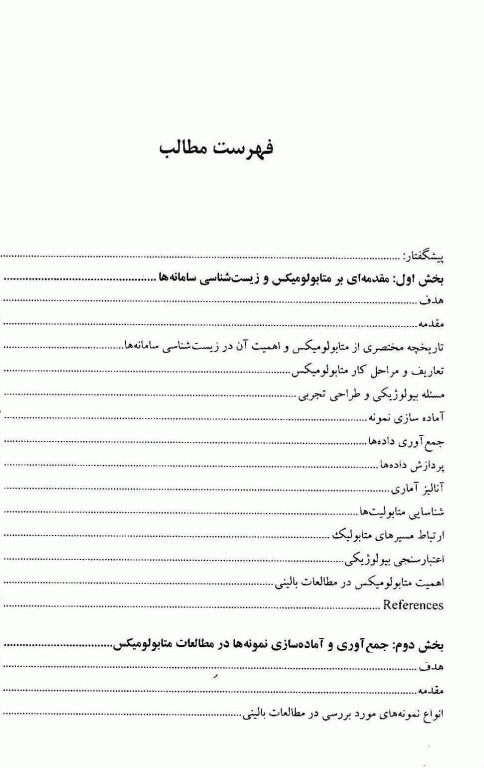 فهرست مطالب
پیشگفتار:
بخش اول: مقدمه‌ای بر متابولومیکس و زیست‌شناسی سامانه‌ها
هدف
مقدمه
تاریخچه مختصری از متابولومیکس و اهمیت آن در زیست‌شناسی سامانه‌ها
تعاریف و مراحل کار متابولومیکس
مسئله بیولوژیکی و طراحی تجربی
آماده سازی نمونه
جمع‌آوری داده‌ها
پردازش داده‌ها
آنالیز آماری
شناسایی متابولیت‌ها
ارتباط مسیرهای متابولیک
اعتبارسنجی بیولوژیکی
اهمیت متابولومیکس در مطالعات بالینی
References
بخش دوم: جمع‌آوری و آماده‌سازی نمونه‌ها در مطالعات متابولومیکس
هدف
مقدمه
انواع نمونه‌های مورد بررسی در مطالعات بالینی